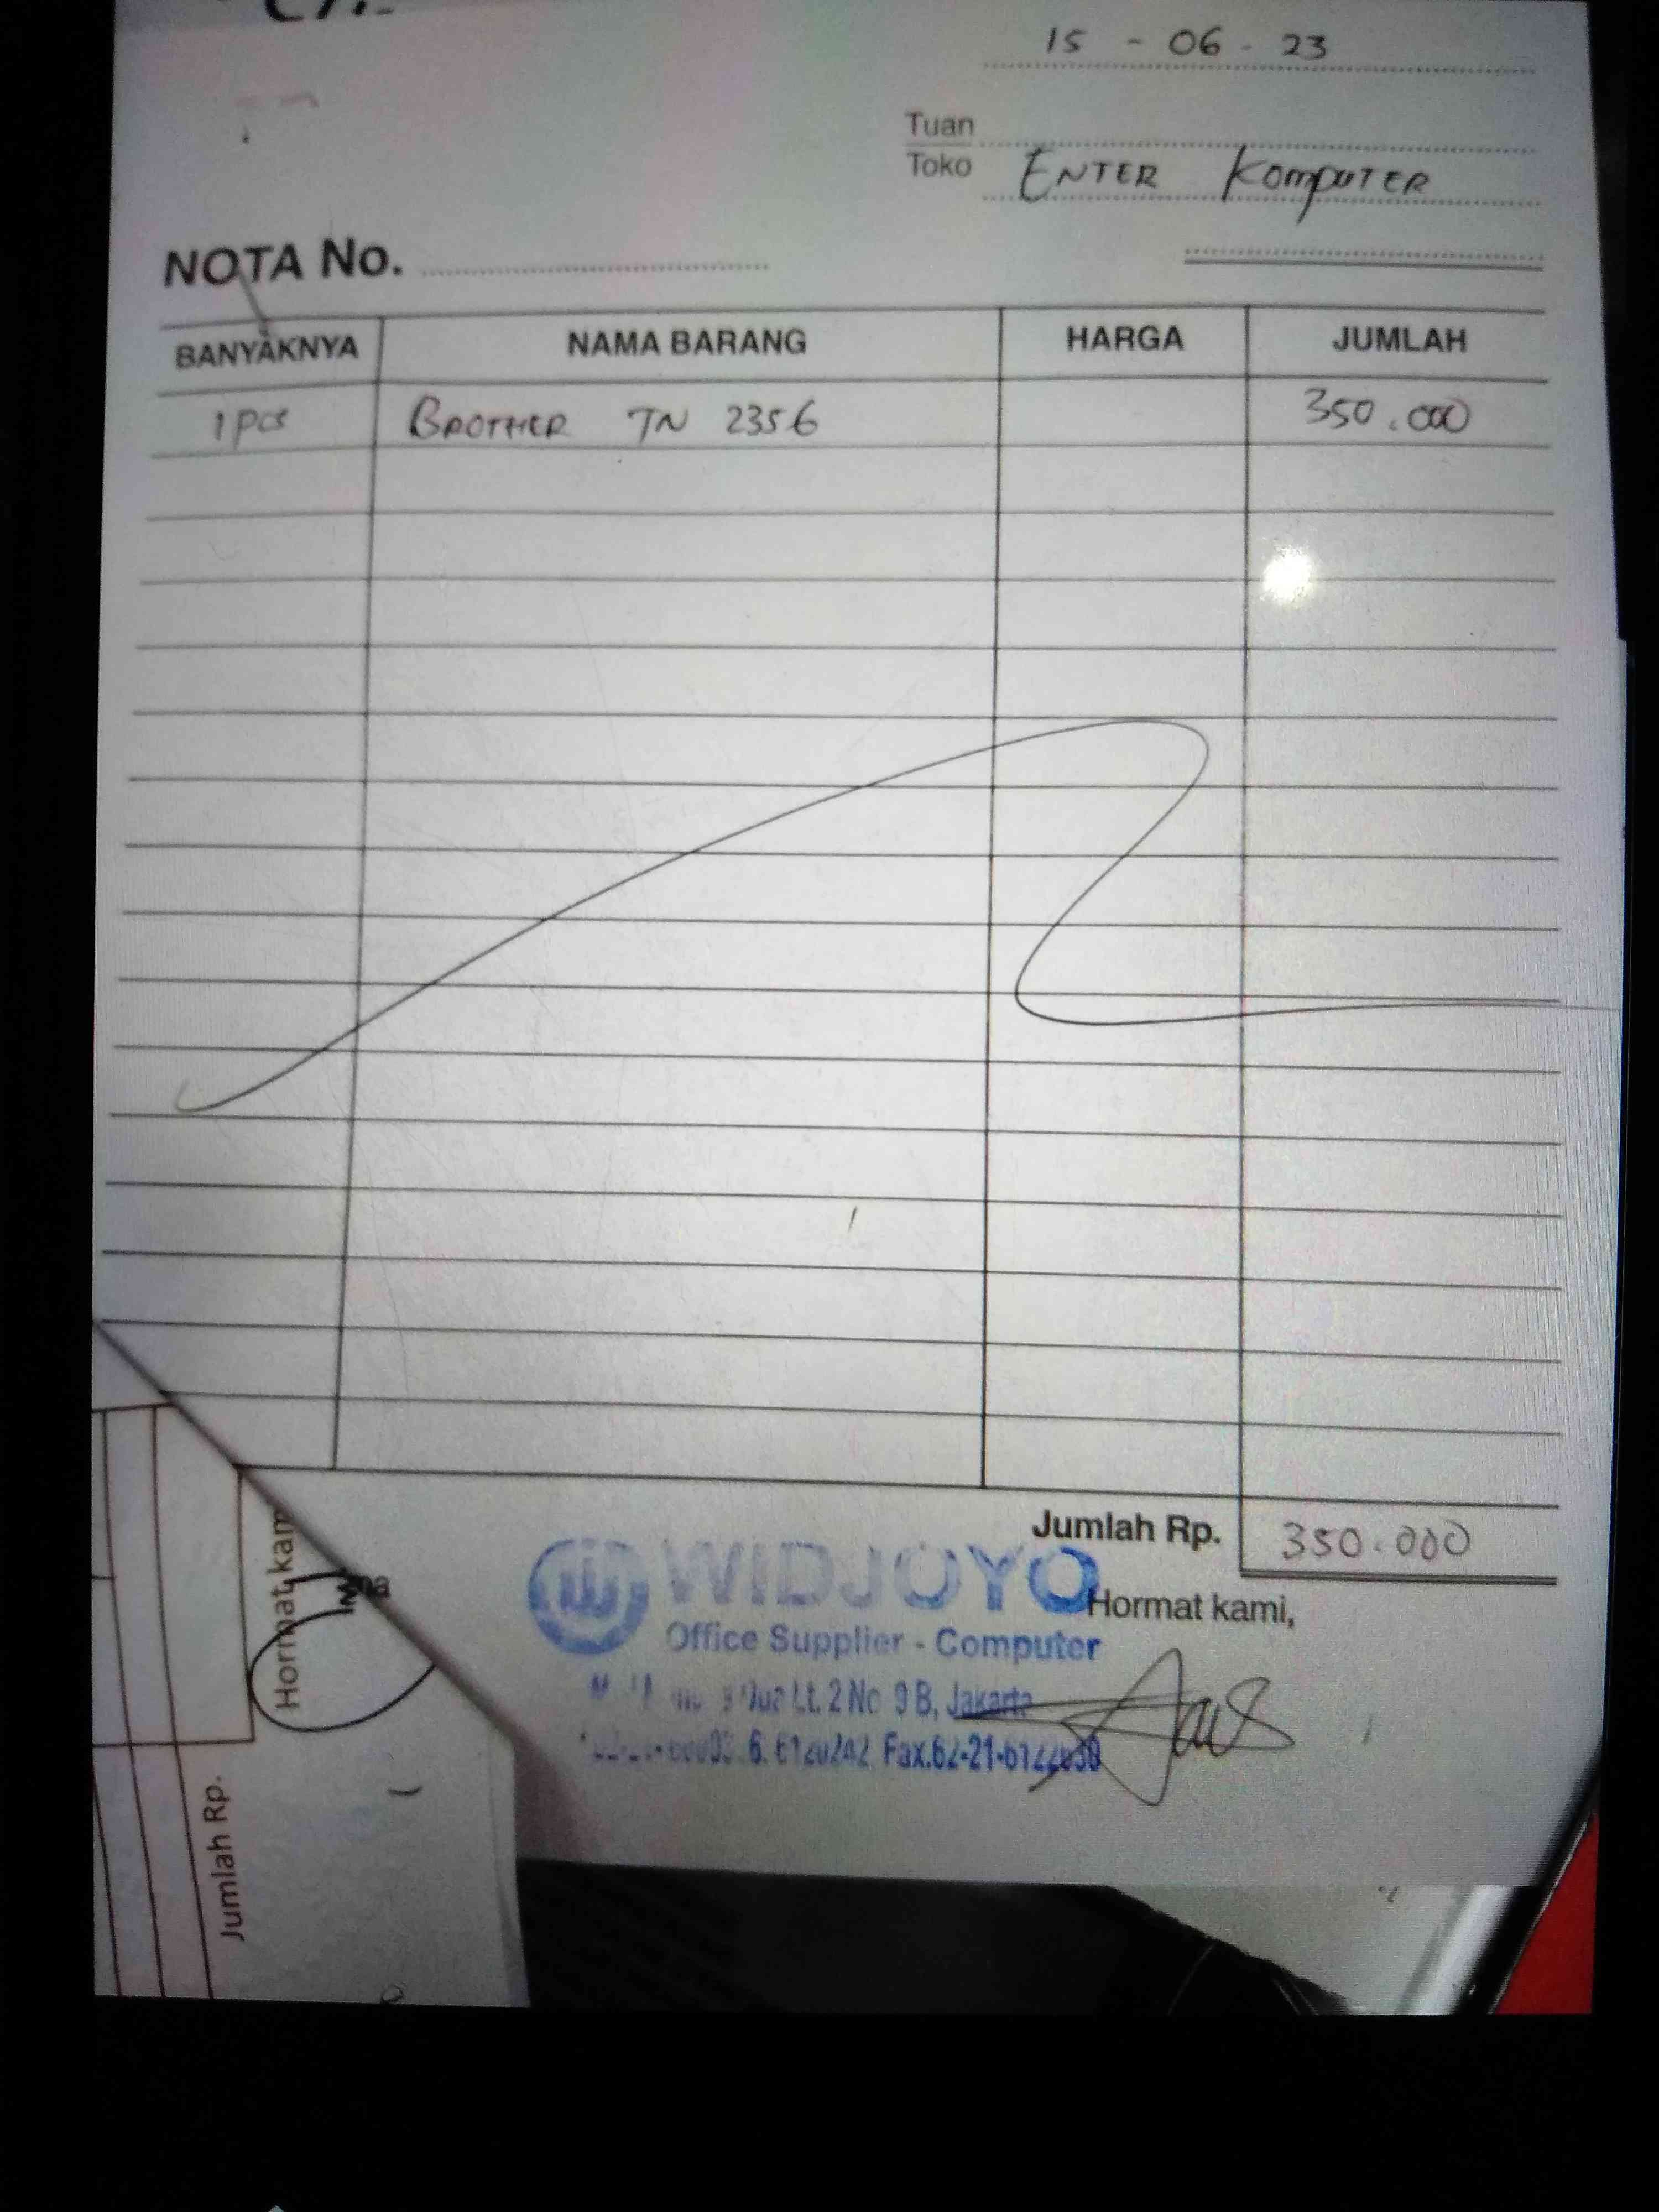 15 - 06 - 23
Tuan
Toko ENTER KOMPUTER
NOTA No.
BANYAKNYA NAMA BARANG HARGA JUMLAH
1 pcs BROTHER TN 2356 350.000
Jumlah Rp. 350.000
WIDJOYO
Hormat kami,
Office Supplier - Computer
Lt. 2 No 9 B, Jakarta
Fax.62-21-
Hormat kam
Jumlah Rp.